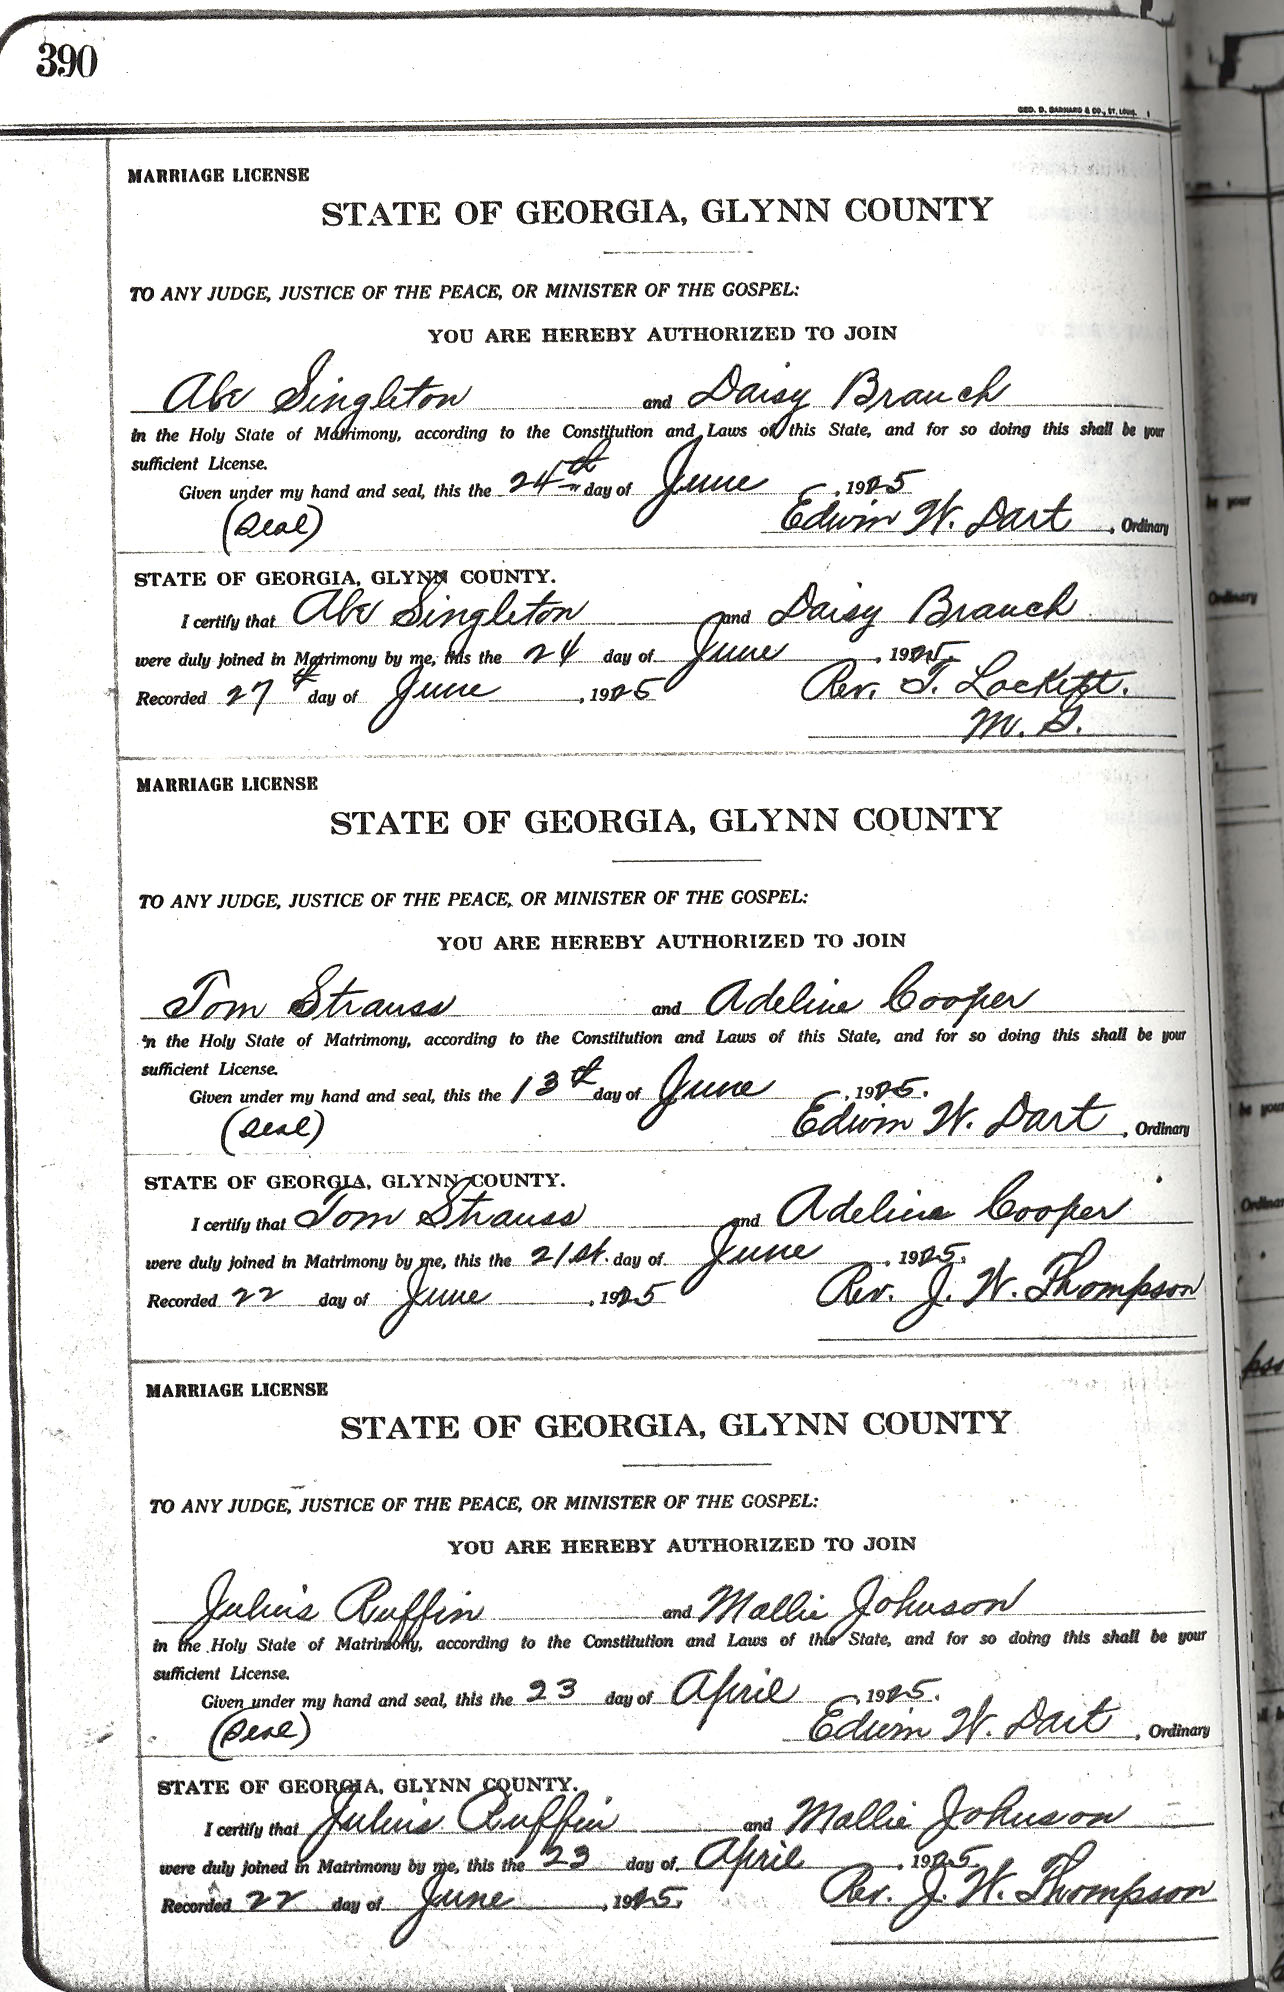 390
GEO. D. BARNARD & CO., ST. LOUIS.
MARRIAGE LICENSE
STATE OF GEORGIA, GLYNN COUNTY
TO ANY JUDGE, JUSTICE OF THE PEACE, OR MINISTER OF THE GOSPEL:
YOU ARE HEREBY AUTHORIZED TO JOIN
Abe Singleton and Daisy Branch
in the Holy State of Matrimony, according to the Constitution and Laws of this State, and for so doing this shall be your
sufficient License.
Given under my hand and seal, this the 24th day of June, 1925
(Seal) Edwin W. Dart, Ordinary
STATE OF GEORGIA, GLYNN COUNTY.
I certify that Abe Singleton and Daisy Branch
were duly joined in Matrimony by me, this the 24 day of June, 1925.
Recorded 27th day of June, 1925 Rev. T. Lockett.
M. G.
MARRIAGE LICENSE
STATE OF GEORGIA, GLYNN COUNTY
TO ANY JUDGE, JUSTICE OF THE PEACE, OR MINISTER OF THE GOSPEL:
YOU ARE HEREBY AUTHORIZED TO JOIN
Tom Strauss and Adeline Cooper
in the Holy State of Matrimony, according to the Constitution and Laws of this State, and for so doing this shall be your
sufficient License.
Given under my hand and seal, this the 13th day of June, 1925.
(Seal) Edwin W. Dart, Ordinary
STATE OF GEORGIA, GLYNN COUNTY.
I certify that Tom Strauss and Adeline Cooper
were duly joined in Matrimony by me, this the 21st. day of June, 1925.
Recorded 22 day of June, 1925 Rev. J. W. Thompson
MARRIAGE LICENSE
STATE OF GEORGIA, GLYNN COUNTY
TO ANY JUDGE, JUSTICE OF THE PEACE, OR MINISTER OF THE GOSPEL:
YOU ARE HEREBY AUTHORIZED TO JOIN
Julius Ruffin and Mallie Johnson
in the Holy State of Matrimony, according to the Constitution and Laws of this State, and for so doing this shall be your
sufficient License.
Given under my hand and seal, this the 23 day of April, 1925.
(Seal) Edwin W. Dart, Ordinary
STATE OF GEORGIA, GLYNN COUNTY.
I certify that Julius Ruffin and Mallie Johnson
were duly joined in Matrimony by me, this the 23 day of April, 1925.
Recorded 22 day of June, 1925. Rev. J. W. Thompson
be your
Ordinary
be your